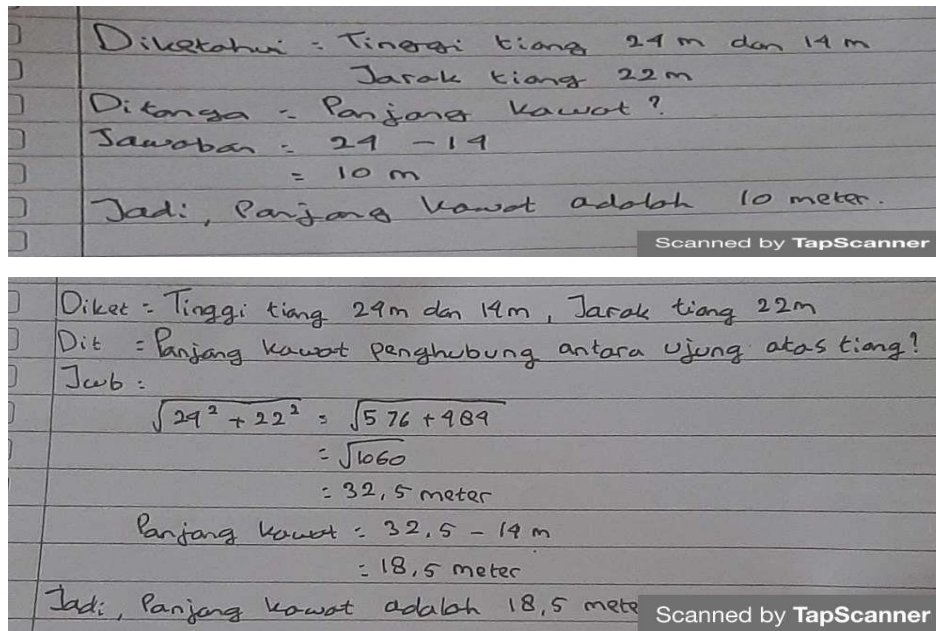 Diketahui = Tinggi tiang 24 m dan 14 m
Jarak tiang 22 m
Ditanya = Panjang kawat ?
Jawaban = 24 - 14
= 10 m
Jadi, Panjang kawat adalah 10 meter.
Scanned by TapScanner
Diket = Tinggi tiang 24m dan 14m, Jarak tiang 22m
Dit = Panjang kawat penghubung antara ujung atas tiang?
Jwb :
√24² + 22² = √576 + 484
= √1060
= 32,5 meter
Panjang kawat = 32,5 - 14 m
= 18,5 meter
Jadi, Panjang kawat adalah 18,5 mete
Scanned by TapScanner